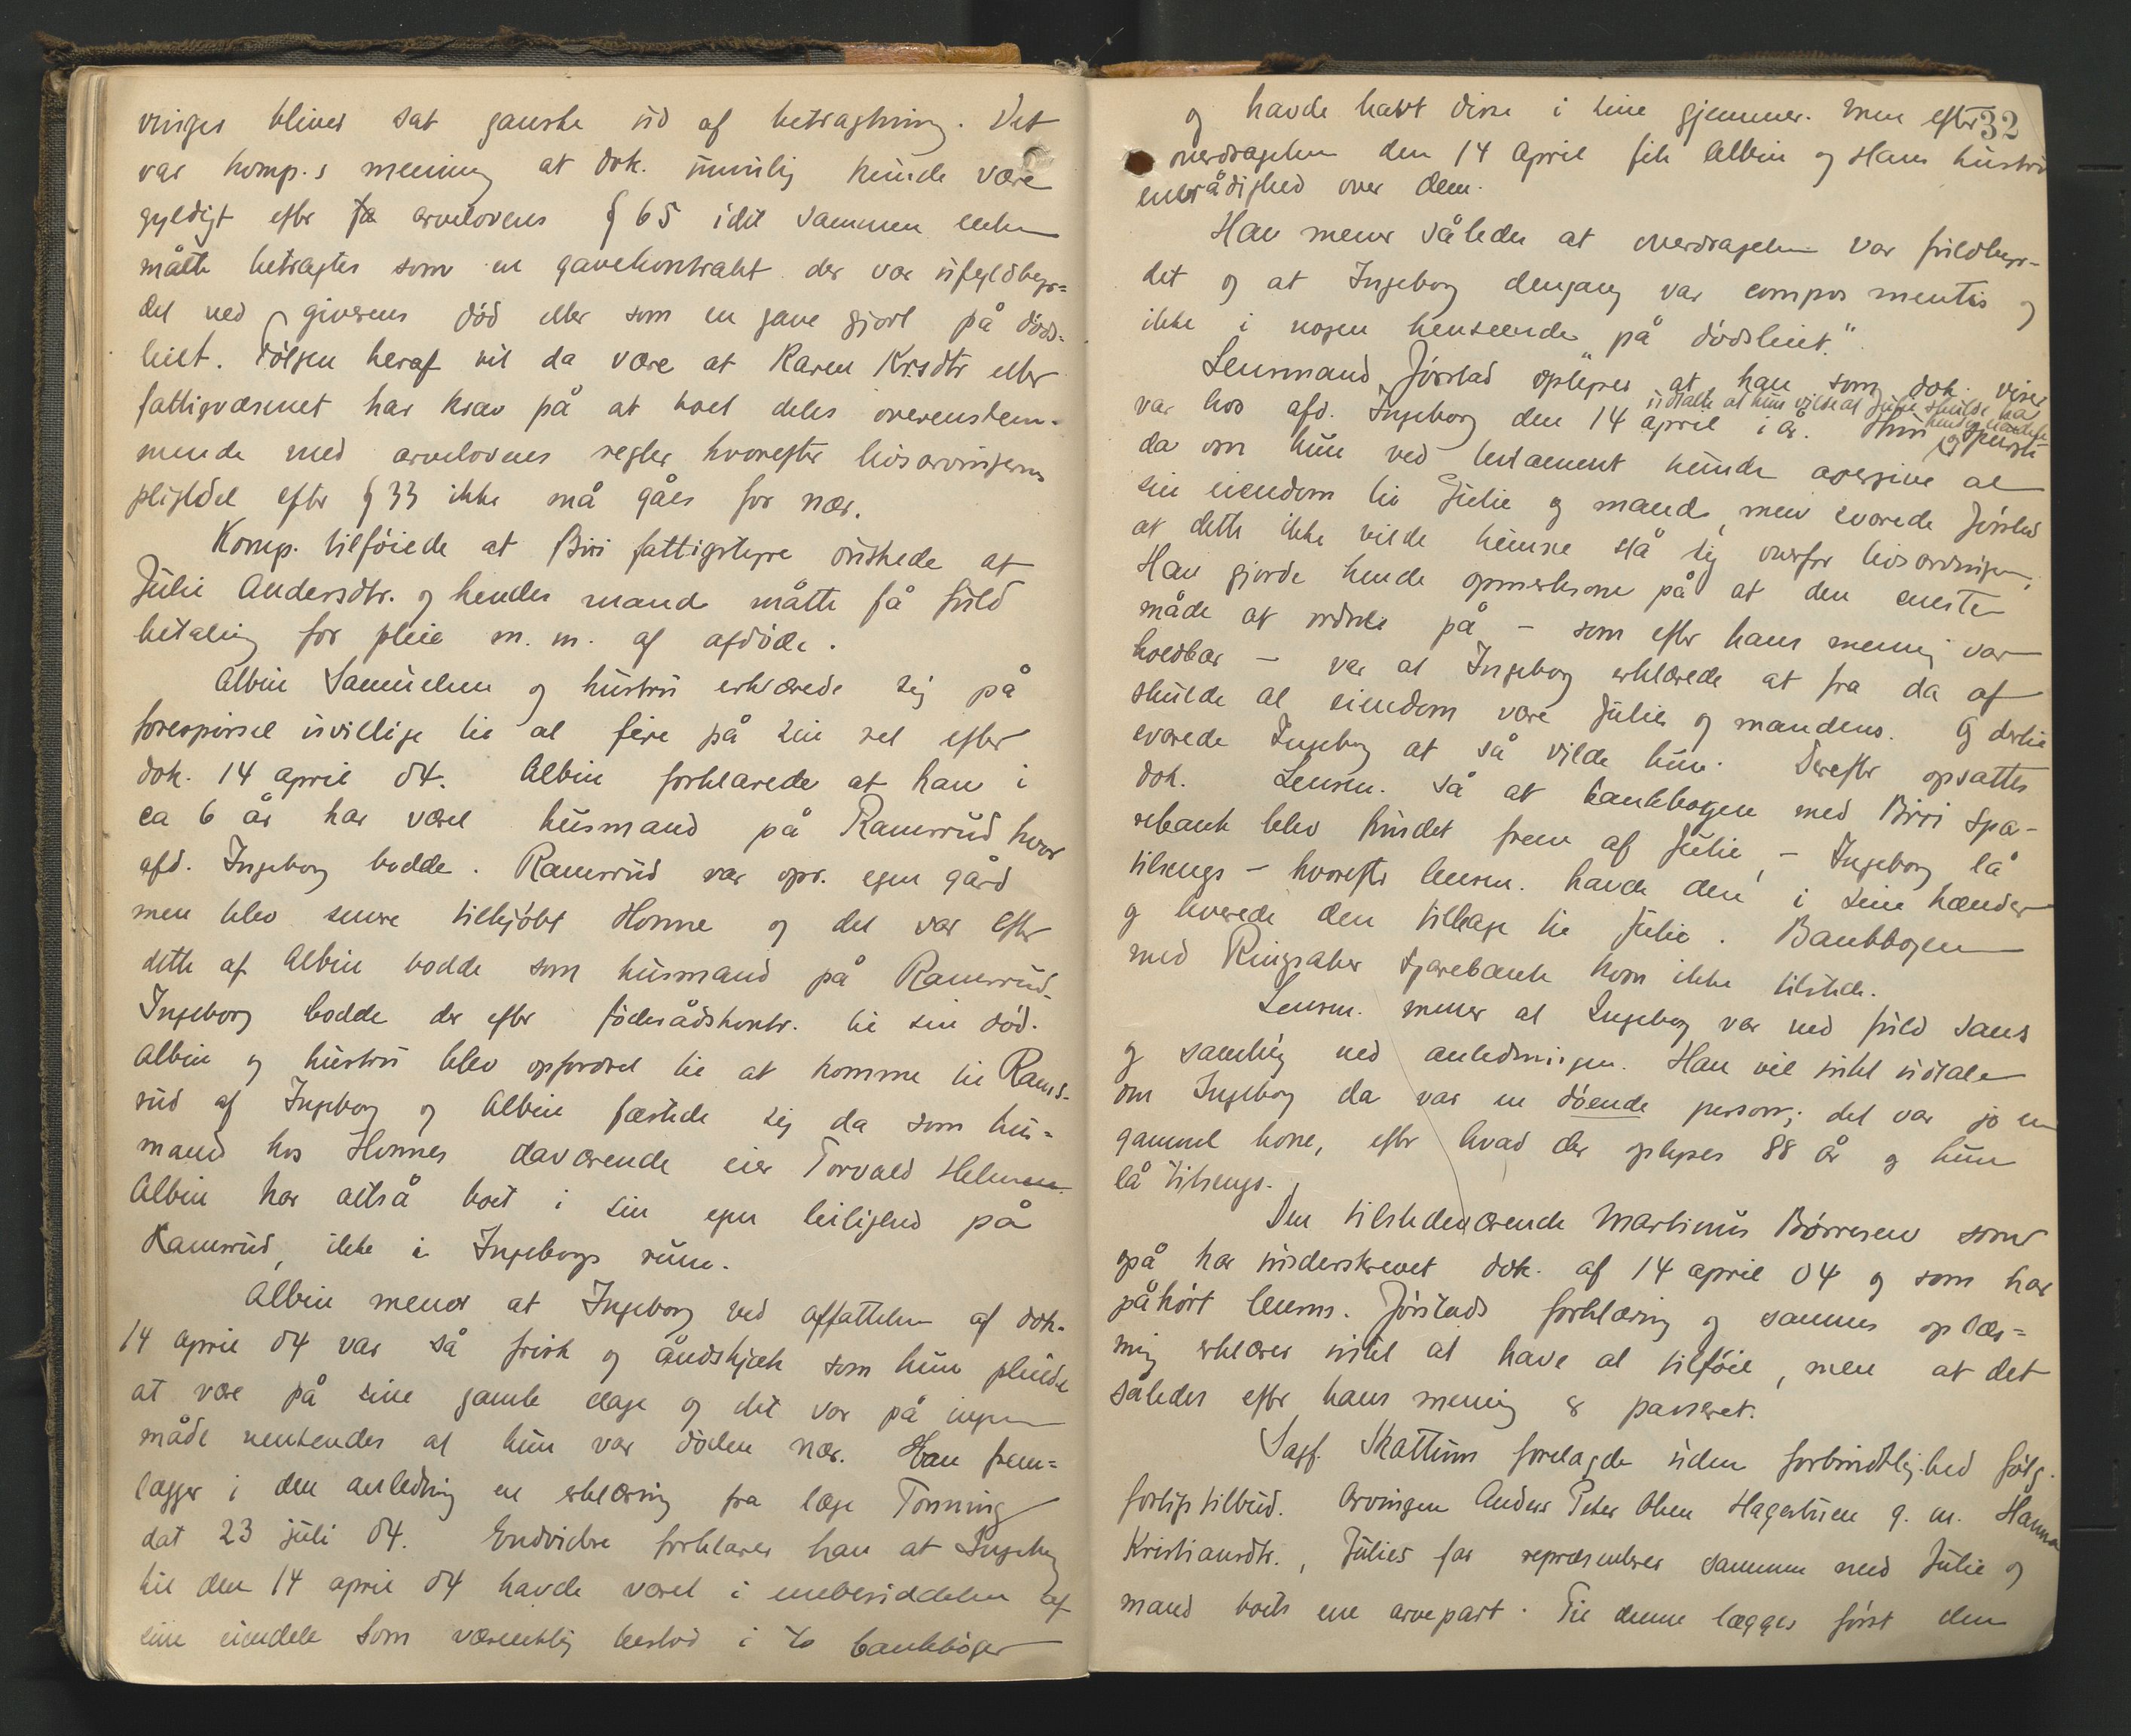 vinger bliver sat ganske ud af betragtning. Det
var komp.s mening at dok. umulig kunde være
gyldigt efter fa arvelovens § 65 idet sammen enten
måtte betragtes som en gavekontrakt der var ufuldbyr=
det ved giverens død eller som en gave gjort på døds=
leiet. Følgen heraf vil da være at Karen Krsdtr eller
fattigvæsenet har krav på at boet deles overenstem-
mende med arvelovens regler hvorefter livsarvingernes
pligtdel efter § 33 ikke må gåes for nær.
Komp. tilføiede at Biri fattigstyre ønskede at
Julie Andersdtr. og hendes mand måtte få fuld
betaling for pleie m. m. af afdøde.
Albin Samuelsen og hustru erklærede sig på
forespørsel uvillige til at fire på sin ret efter
dok. 14 april 04. Albin forklarede at han i
ca 6 år har været husmand på Ramsrud hvor
afd. Ingeborg bodde. Ramsrud var opr. egen gård
men blev senere tilkjøbt Honne og det var efter
dette at Albin bodde som husmand på Ramsrud.
Ingeborg bodde der efter føderådskontr. til sin død.
Albin og hustru blev opfordret til at komme til Rams-
rud af Ingeborg og Albin fæstede sig da som hus=
mand hos Honnes daværende eier Torvald Helmen.
Albin har altså boet i sin egen leilighed på
Ramsrud, ikke i Ingeborgs rum.
Albin mener at Ingeborg ved affattelsen af dok.
14 april 04 var så frisk og åndskjæk som hun pleiede
at være på sine gamle dage og det var på ingen
måde ventendes at hun var døden nær. Han frem=
lægger i den anledning en erklæring fra læge Tønning
dat 23 juli 04. Endvidere forklarer han at Ingeborg
til den 14 april 04 havde været i enebesiddelsen af
sine eiendele som væsentlig bestod i to bankbøger
32
og havde havt disse i sine gjemmer. Men efter
overdragelsen den 14 april fik Albin og Hans hustru
enerådighed over dem.
Han mener således at overdragelsen var fuldbyr-
det og at Ingeborg dengang var compos mentis og
ikke i nogen henseende "på dødsleiet."
Lensmand Jørstad oplyser at han som dok. viser
udtalte at hun vilde at Julie skulde ha
hendes eiendele
var hos afd. Ingeborg den 14 april i år. Hun og spurgte
da om hun ved testament kunde overgive al
sin eiendom til Julie og mand, men svarede Jørstad
at dette ikke vilde kunne stå sig overfor livsarvingen.
Han gjorde hende opmerksom på at den eneste
måde at ordne på – som efter hans mening var
holdbar – var at Ingeborg erklærede at fra da af
skulde al eiendom være Julies og mandens. Og dertil
svarede Ingeborg at så vilde hun. Derefter opsattes
dok. Lensm. så at bankbogen med Biri spa-
rebank blev fundet frem af Julie, – Ingeborg lå
tilsengs – hvorefter lensm. havde den i sine hænder
og leverede den tilbage til Julie. Bankbogen
med Ringsaker sparebank kom ikke tilstede.
Lensm. mener at Ingeborg var ved fuld sans
og samling ved anledningen. Han vil intet udtale
om Ingeborg da var en døende person; det var jo en
gammel kone, efter hvad der oplyses 88 år og hun
lå tilsengs.
Den tilstedeværende Martinus Børresen som
også har underskrevet dok. af 14 april 04 og som har
påhørt lensm. Jørstads forklaring og sammes oplæs=
ning erklærer intet at have at tilføie, men at det
således efter hans mening er passeret.
Sagf. Skattum forelagde uden forbindtlighed følg.
forligstilbud. Arvingen Anders Peter Olsen Hagestuen g. m. Hanna
Kristiansdtr., Julies far repræsenterer sammen med Julie og
mand boets ene arvepart. Til denne lægges først den